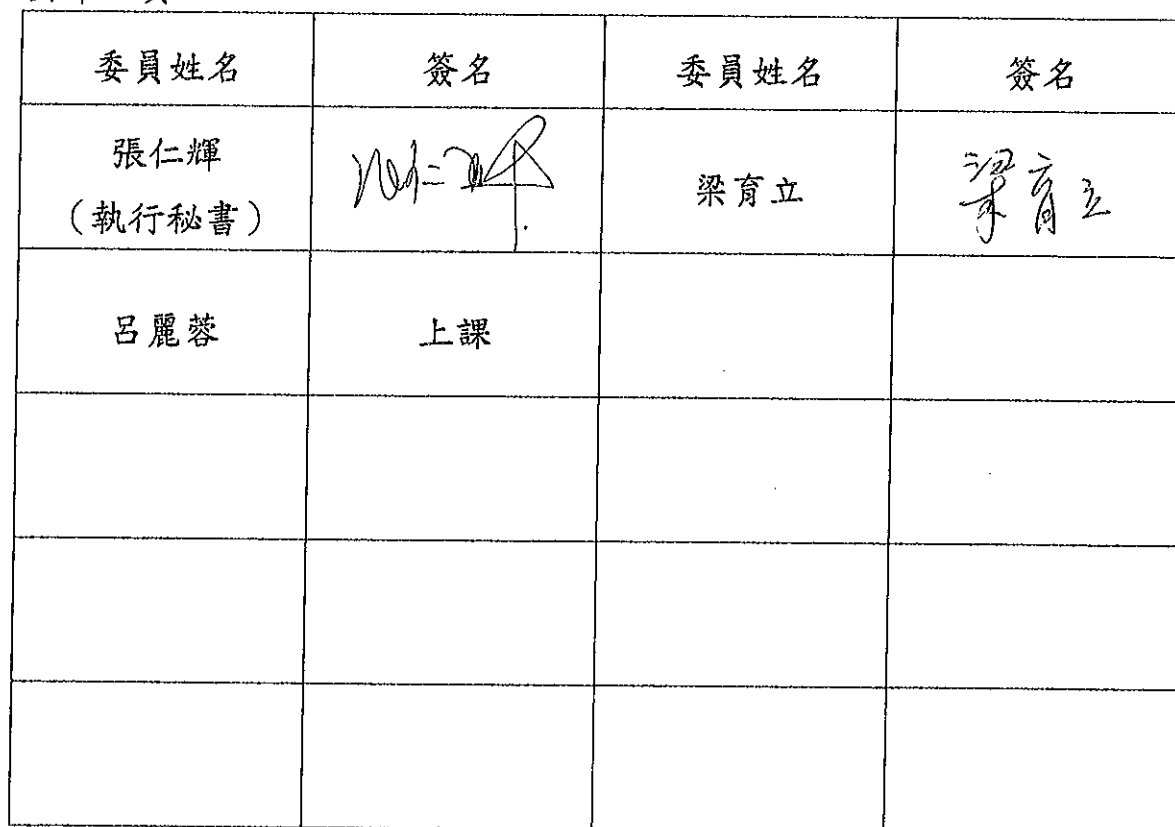 委員姓名 簽名 委員姓名 簽名
張仁輝
(執行秘書) 張仁輝 梁育立 梁育立
呂麗蓉 上課